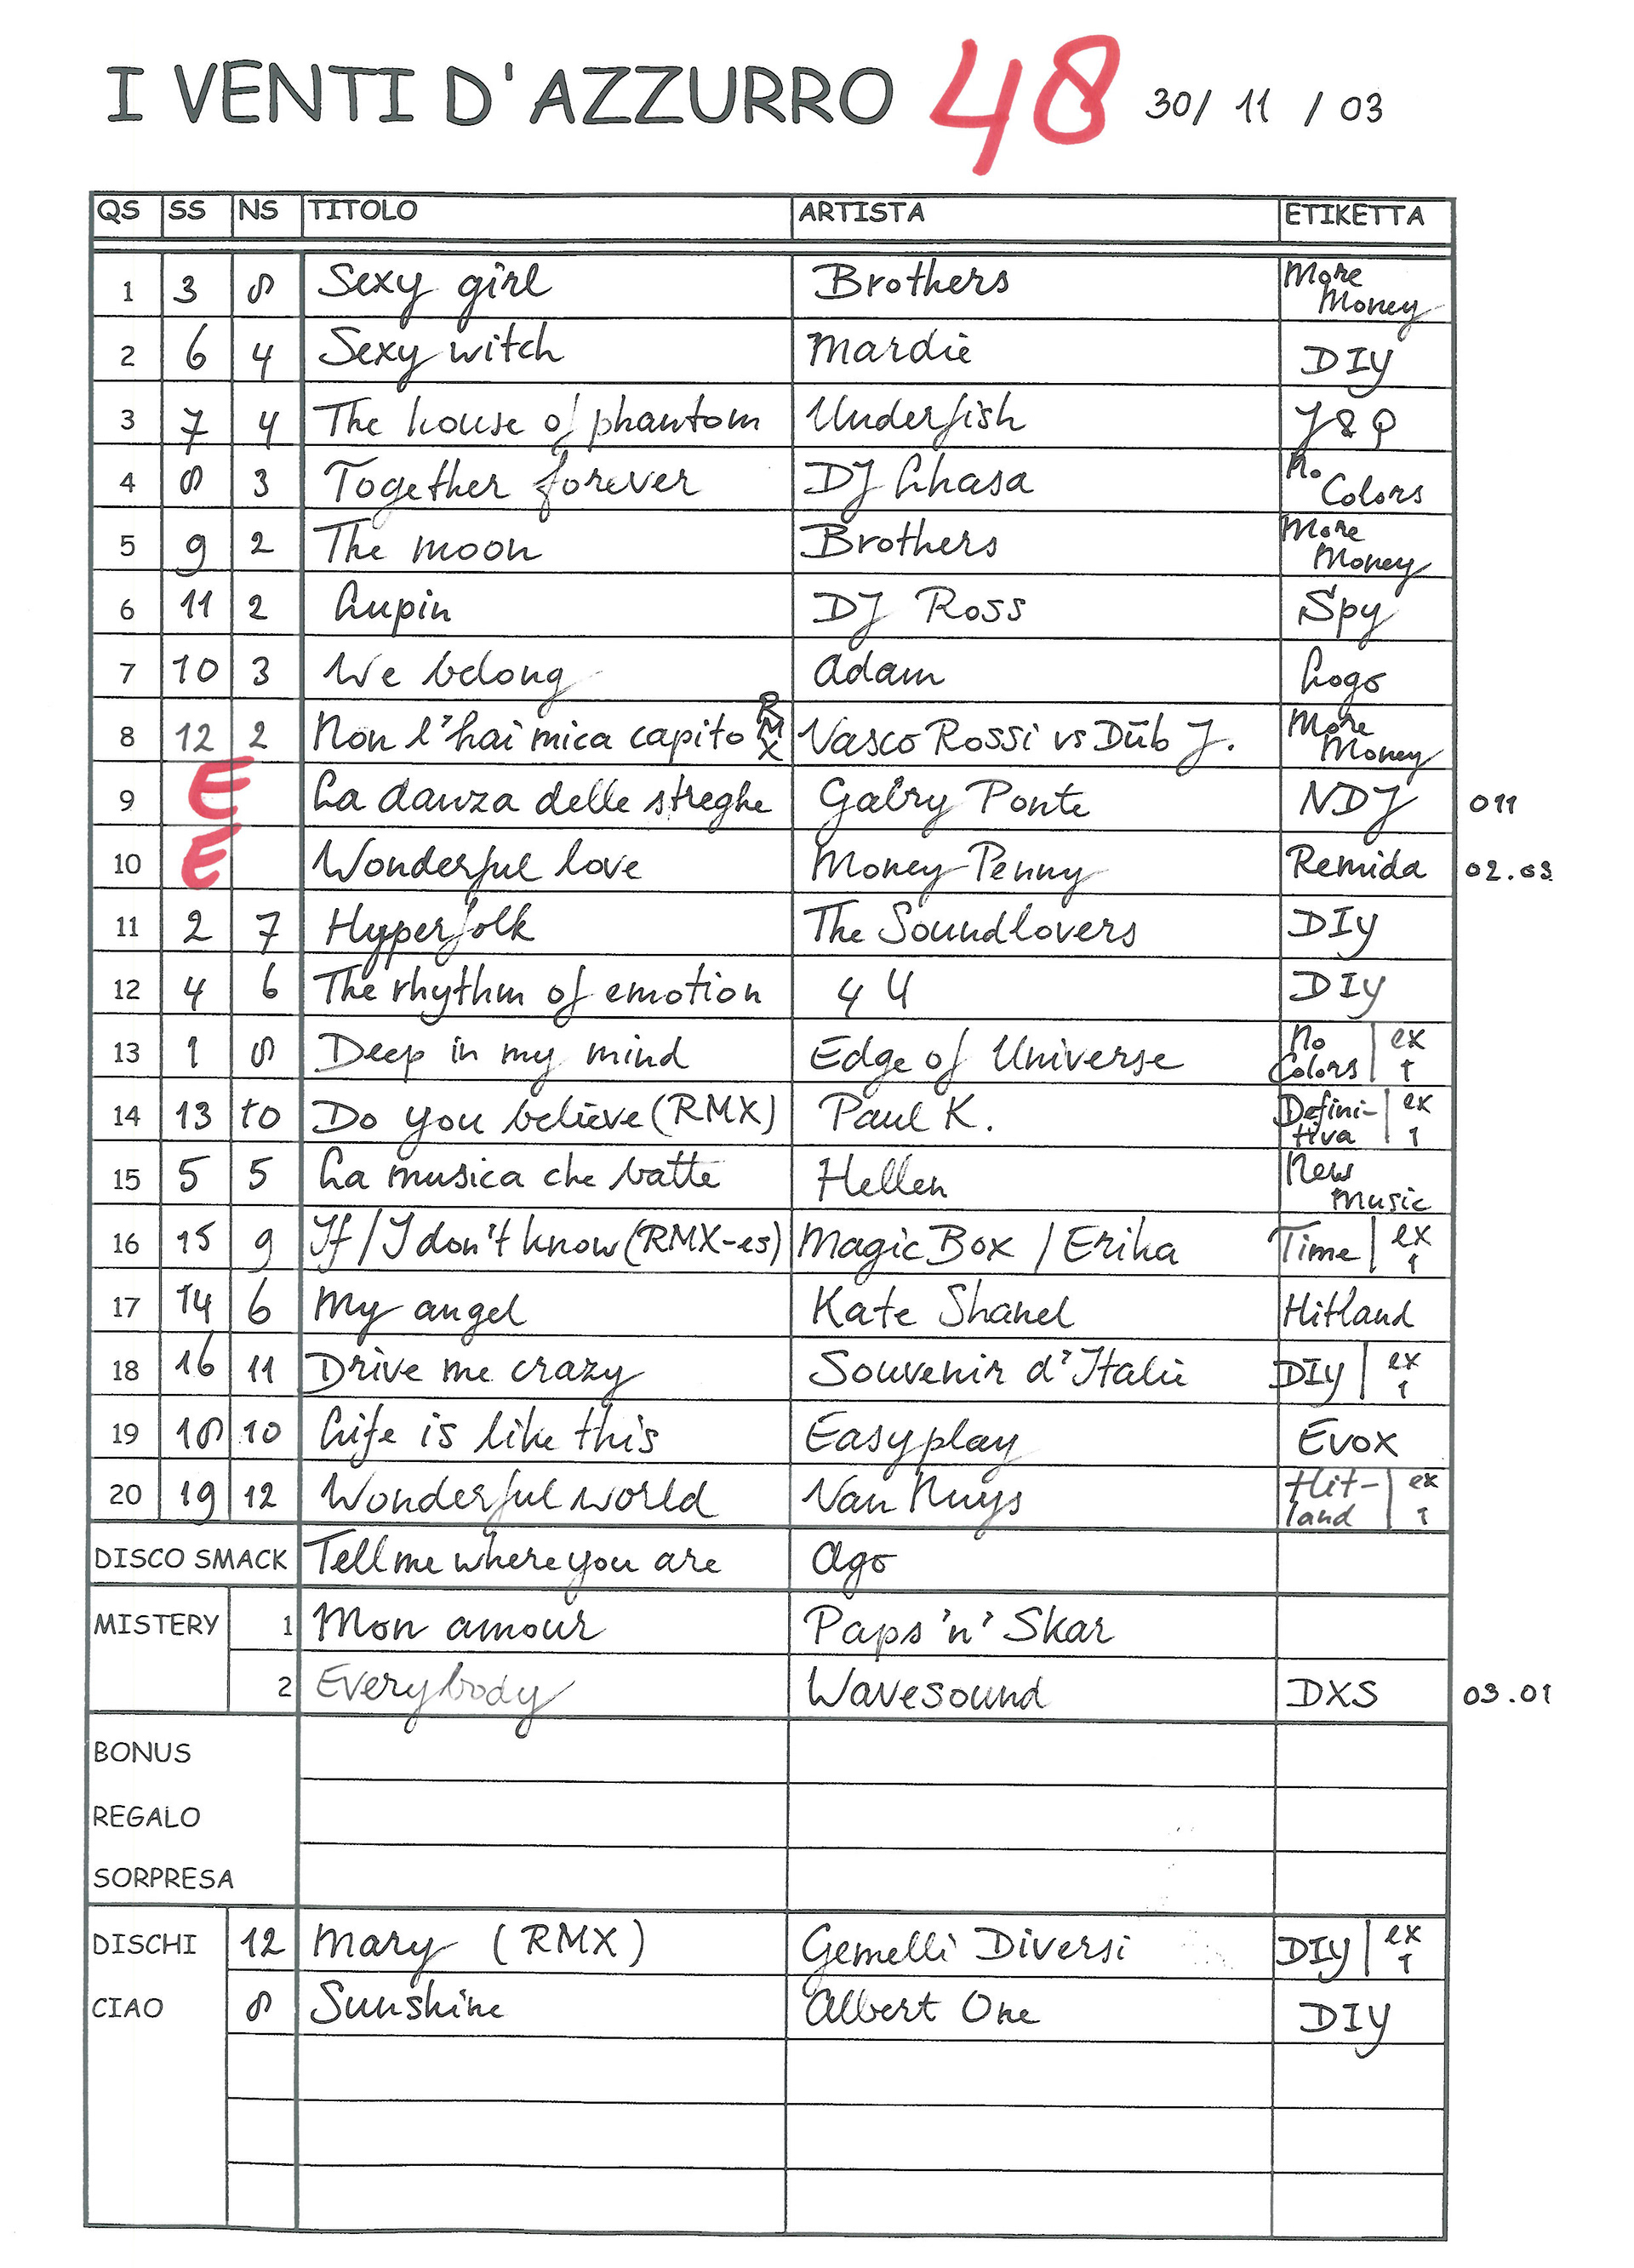 I VENTI D'AZZURRO 48 30/ 11 / 03
QS SS NS TITOLO ARTISTA ETIKETTA
1 3 8 Sexy girl Brothers More Money
2 6 4 Sexy witch Mardie DIY
3 7 4 The house of phantom Underfish J&Q
4 8 3 Together forever DJ Lhasa No Colors
5 9 2 The moon Brothers More Money
6 11 2 Lupin DJ Ross Spy
7 10 3 We belong Adam Logo
8 12 2 Non l'hai mica capito RMX Vasco Rossi vs Dūb J. More Money
9 E La danza delle streghe Gabry Ponte NDJ 011
10 E Wonderful love Money Penny Remida 02.03
11 2 7 Hyperfolk The Soundlovers DIY
12 4 6 The rhythm of emotion 4 U DIY
13 1 8 Deep in my mind Edge of Universe No Colors | ex 1
14 13 10 Do you believe (RMX) Paul K. Defini-tiva | ex 1
15 5 5 La musica che batte Hellen New Music
16 15 9 If / I don't know (RMX-es) Magic Box / Erika Time | ex 1
17 14 6 My angel Kate Shanel Hitland
18 16 11 Drive me crazy Souvenir d'Italie DIY | ex 1
19 18 10 Life is like this Easyplay Evox
20 19 12 Wonderful world Van Nuys Hit-land | ex 1
DISCO SMACK Tell me where you are Ago
MISTERY 1 Mon amour Paps 'n' Skar
2 Everybody Wavesound DXS 03.01
BONUS
REGALO
SORPRESA
DISCHI 12 Mary (RMX) Gemelli Diversi DIY | ex 1
CIAO 8 Sunshine Albert One DIY